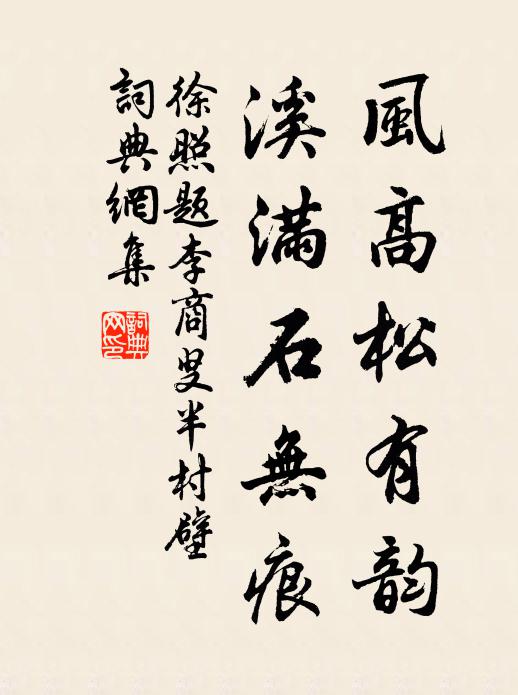 風高松有韵
溪滿石無痕
徐照题李商叟半村壁
詞典網集
詞典
网印